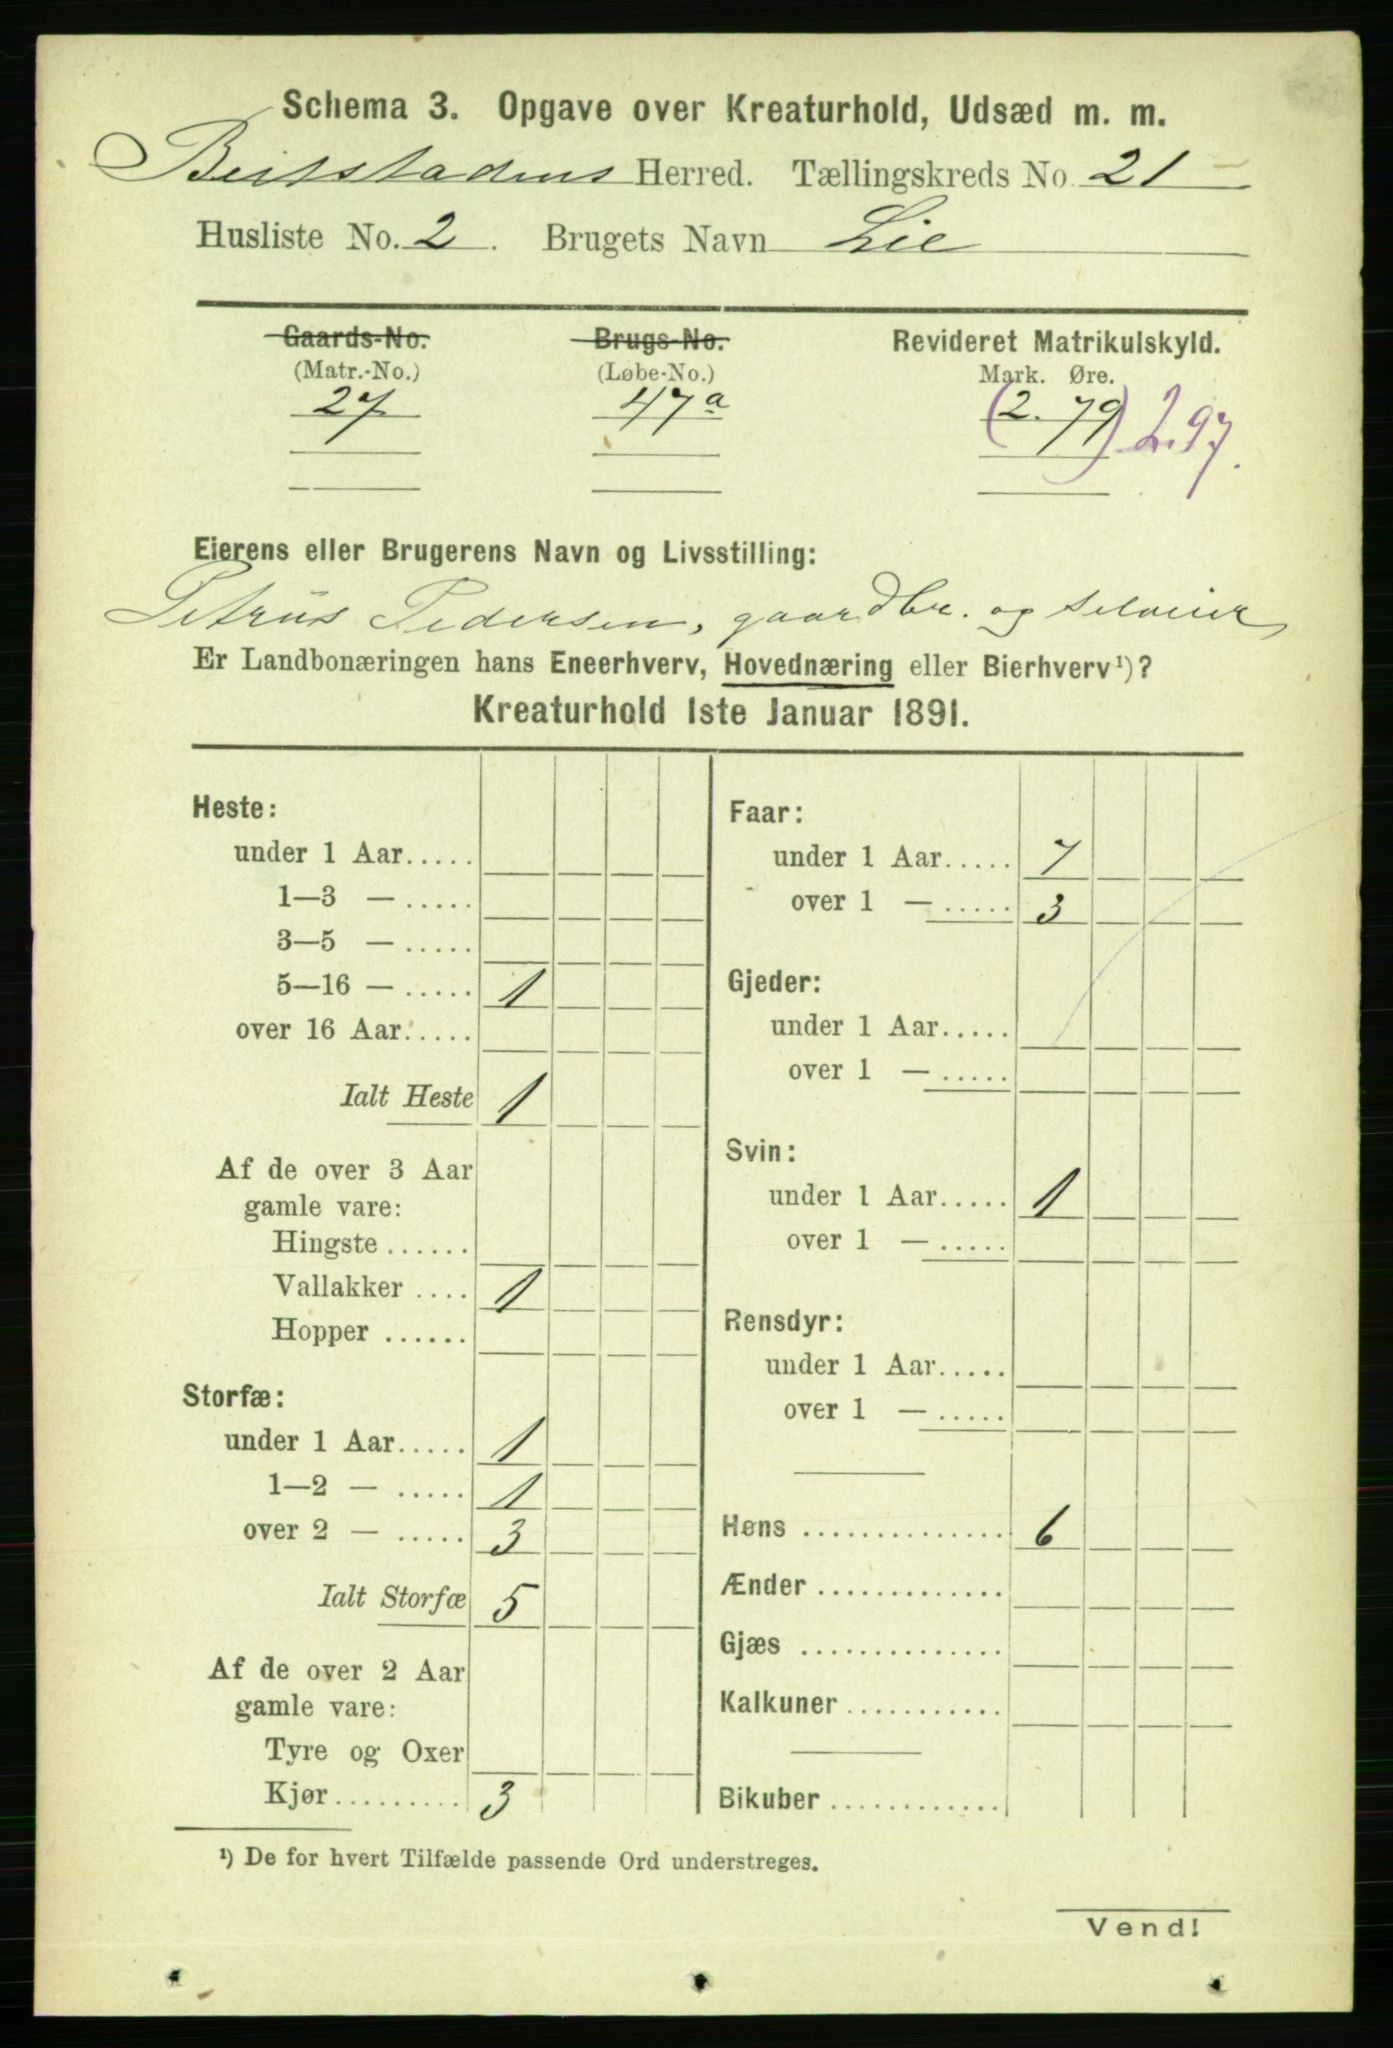 Schema 3. Opgave over Kreaturhold, Udsæd m. m.
Beitstadens Herred. Tællingskreds No. 21
Husliste No. 2. Brugets Navn Lie
Gaards-No. Brugs-No. Revideret Matrikulskyld.
(Matr.-No.) (Løbe-No.) Mark. Øre.
27 47a (2.79) 2.97.
Eierens eller Brugerens Navn og Livsstilling:
Petrus Pedersen, gaardbr. og selveier
Er Landbonæringen hans Eneerhverv, Hovednæring eller Bierhverv¹)?
Kreaturhold 1ste Januar 1891.
Heste:
under 1 Aar.....
1—3 — .....
3—5 — .....
5—16 — ..... 1
over 16 Aar.....
Ialt Heste 1
Af de over 3 Aar
gamle vare:
Hingste ......
Vallakker .... 1
Hopper ......
Storfæ:
under 1 Aar..... 1
1—2 — ..... 1
over 2 — ..... 3
Ialt Storfæ 5
Af de over 2 Aar
gamle vare:
Tyre og Oxer
Kjør.......... 3
Faar:
under 1 Aar..... 7
over 1 — ..... 3
Gjeder:
under 1 Aar.....
over 1 — .....
Svin:
under 1 Aar..... 1
over 1 — .....
Rensdyr:
under 1 Aar.....
over 1 — .....
Høns .............. 6
Ænder .............
Gjæs ..............
Kalkuner ...........
Bikuber ............
¹) De for hvert Tilfælde passende Ord understreges.
Vend!